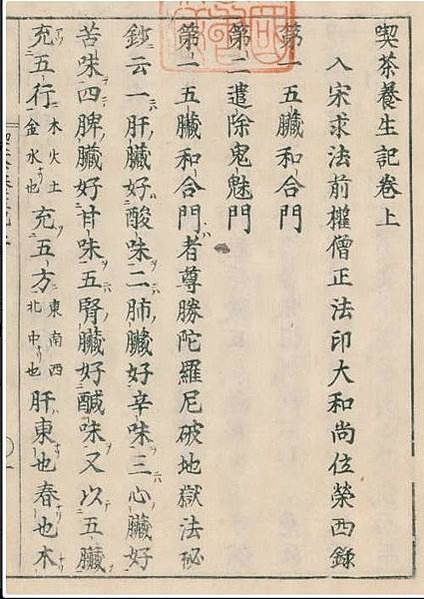 喫茶養生記卷上
入宋求法前權僧正法印大和尚位榮西錄
第一五臟和合門
第二遣除鬼魅門
第一五臟和合門者尊勝陀羅尼破地獄法秘
鈔云一肝臟好酸味二肺臟好辛味三心臟好
苦味四脾臟好甘味五腎臟好醎味又以五臟
充五行木火土金水也充五方東南西北中也肝東也春也木